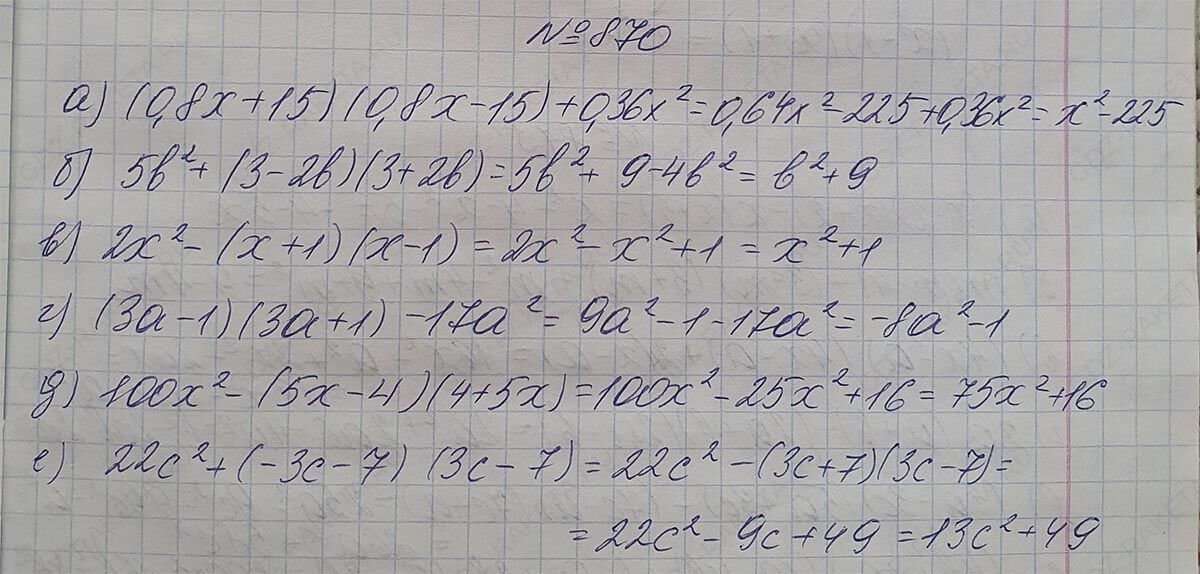 №870
а) (0,8x+15)(0,8x-15)+0,36x²=0,64x²-225+0,36x²=x²-225
б) 5b²+(3-2b)(3+2b)=5b²+9-4b²=b²+9
в) 2x²-(x+1)(x-1)=2x²-x²+1=x²+1
г) (3a-1)(3a+1)-17a²=9a²-1-17a²=-8a²-1
д) 100x²-(5x-4)(4+5x)=100x²-25x²+16=75x²+16
е) 22c²+(-3c-7)(3c-7)=22c²-(3c+7)(3c-7)=
=22c²-9c+49=13c²+49